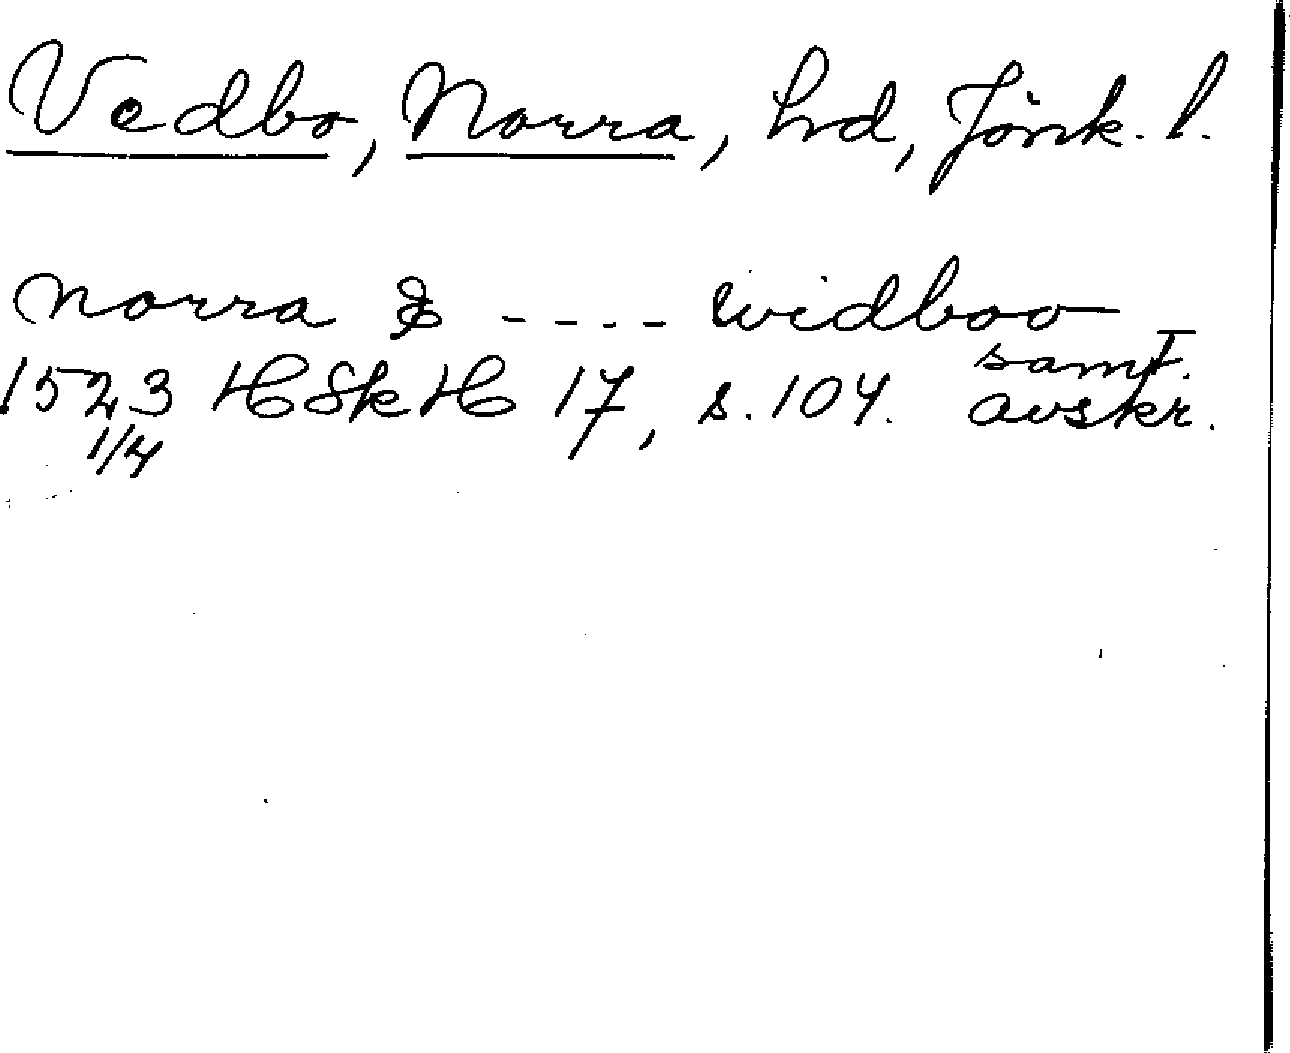 Vedbo, Norra, hd, Jönk. l.
norra & ---- widboo
1523 HSkH 17, s. 104. samt. avskr.
1/4